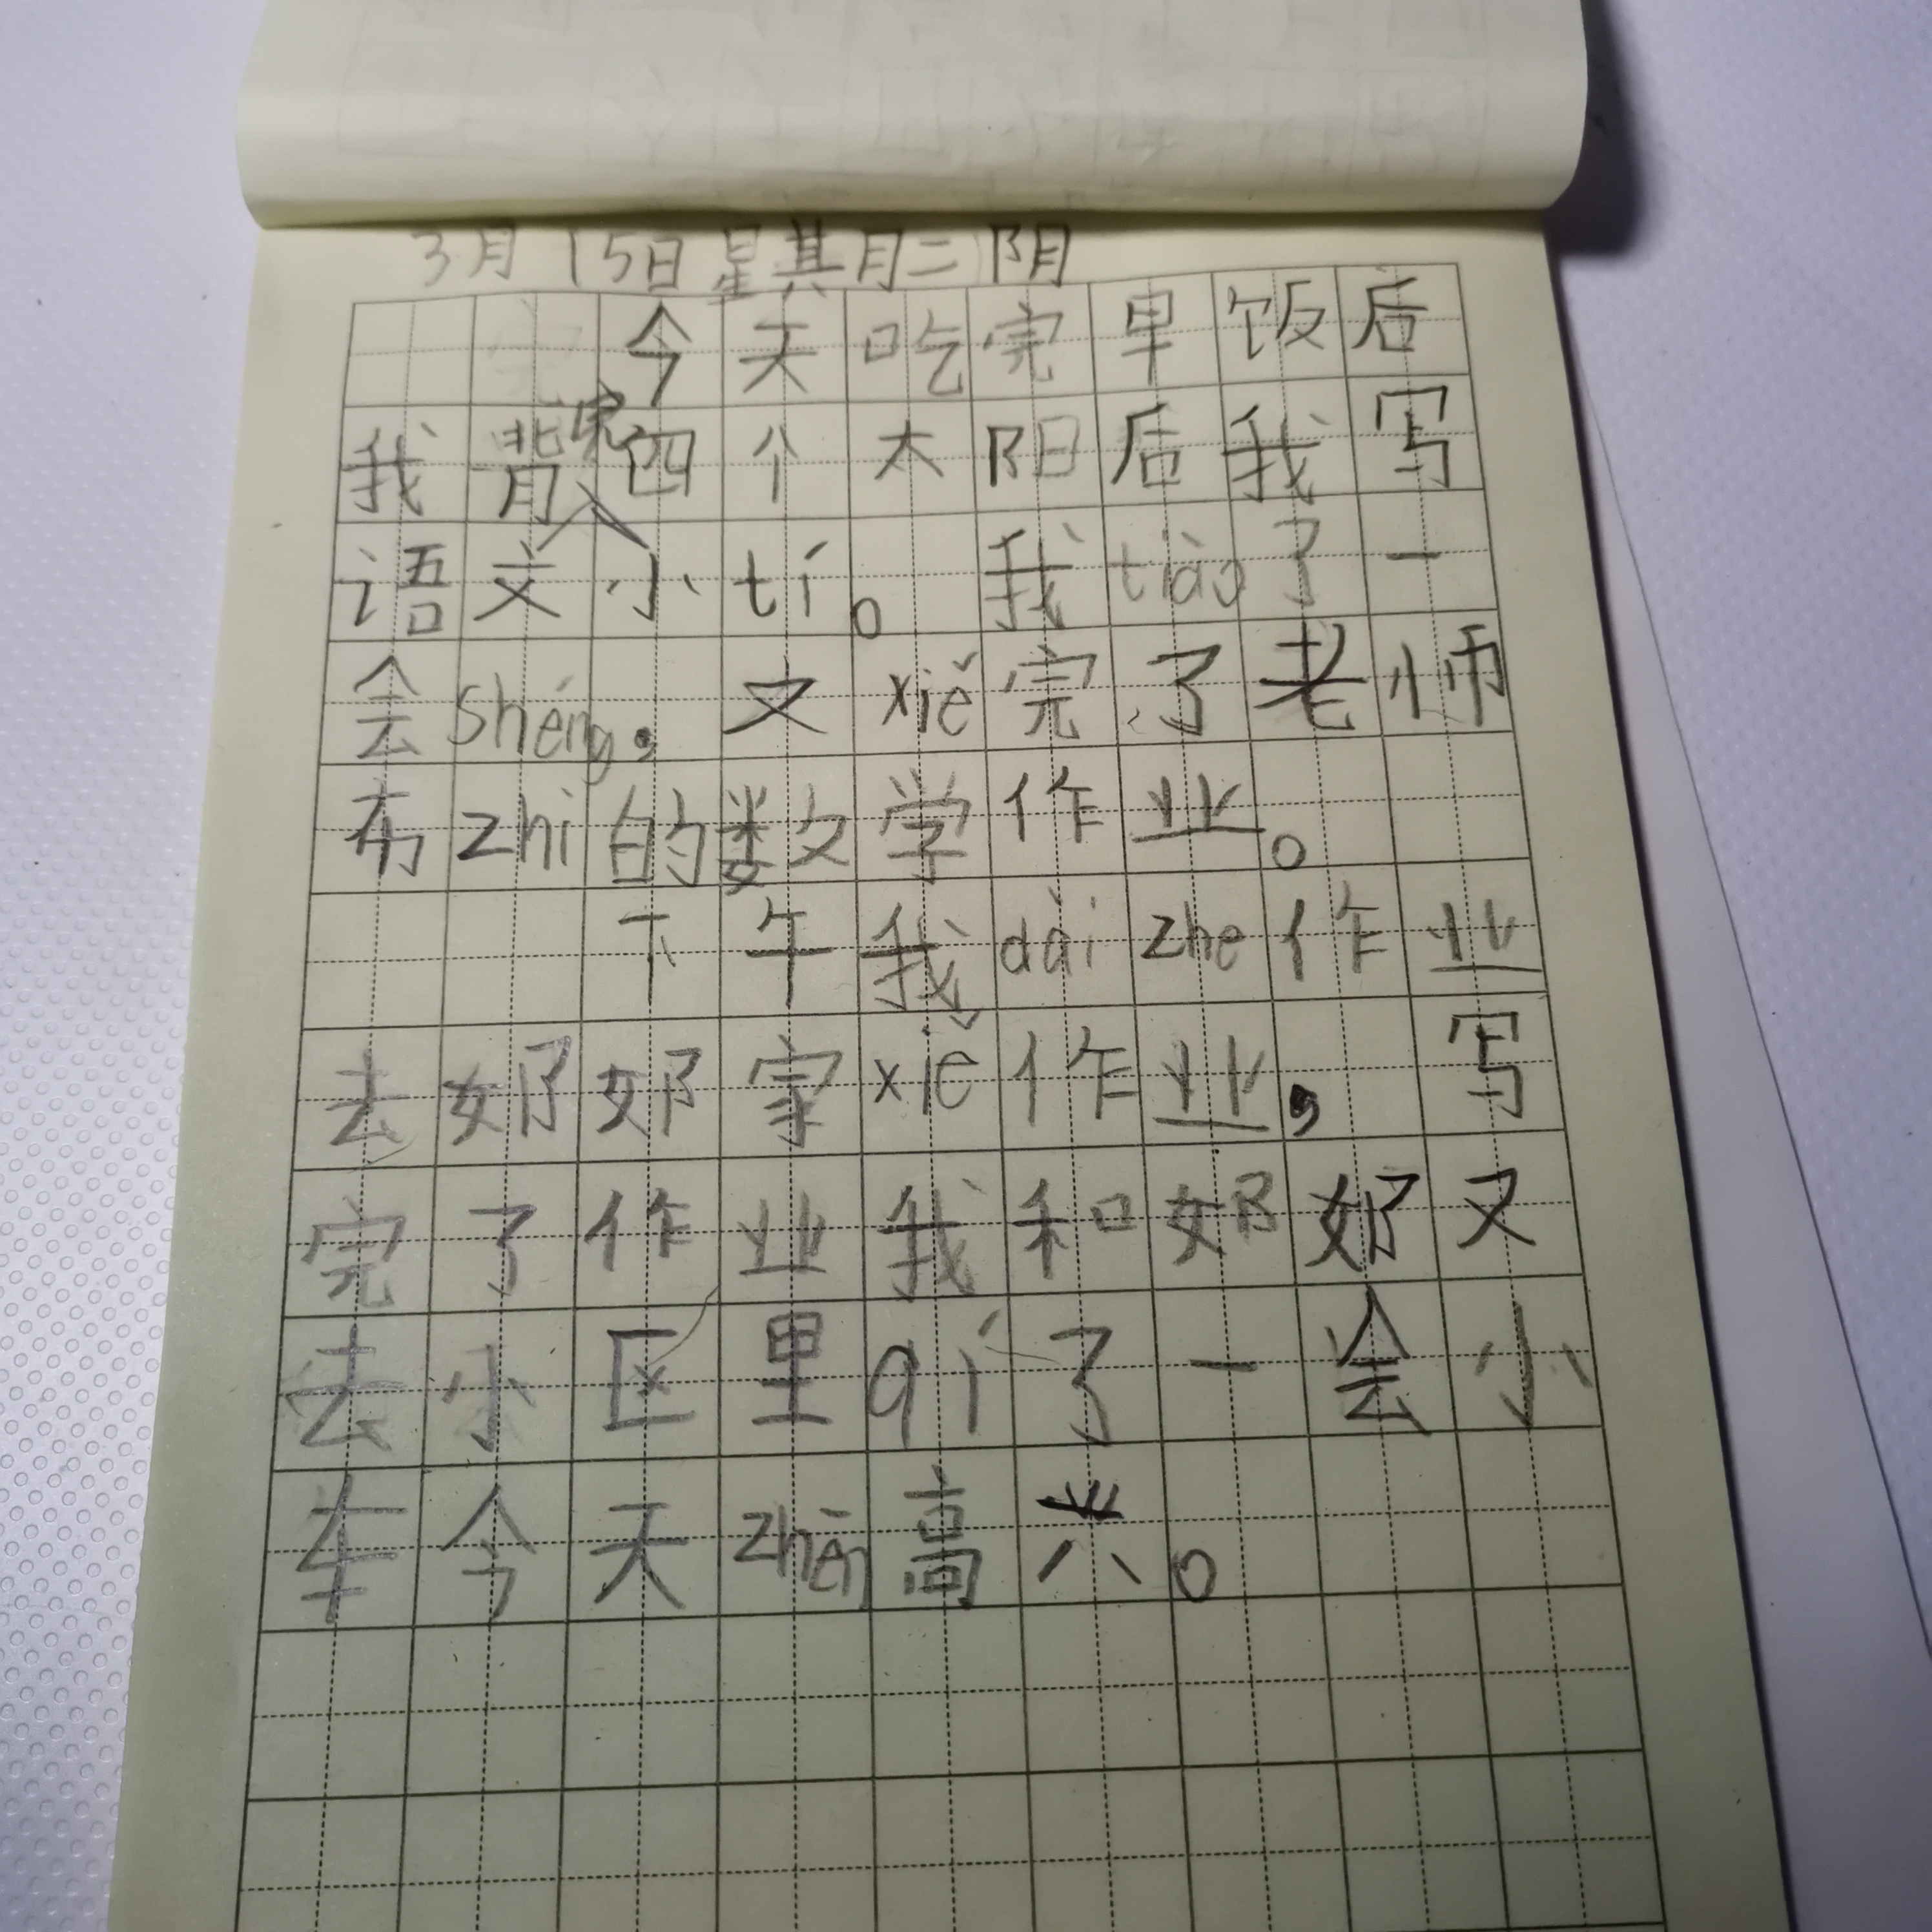 3月15日星期二阴
今天吃完早饭后
我背完四个太阳后我写
语文小tí。我tiào了一
会shéng,文xiě完了老师
布zhi的数学作业。
下午我dài zhe作业
去郊郊家xiě作业,写
完了作业我和郊郊又
去小区里qí了一会小
车今天zhēn高兴。